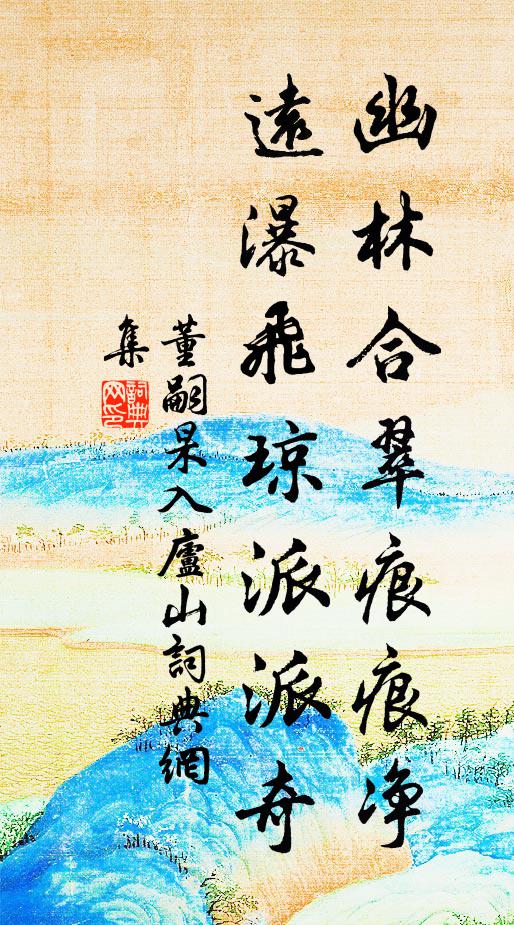 幽林合翠痕痕净
遠瀑飛琼派派奇
董嗣杲入廬山詞典網
集
詞典
网印